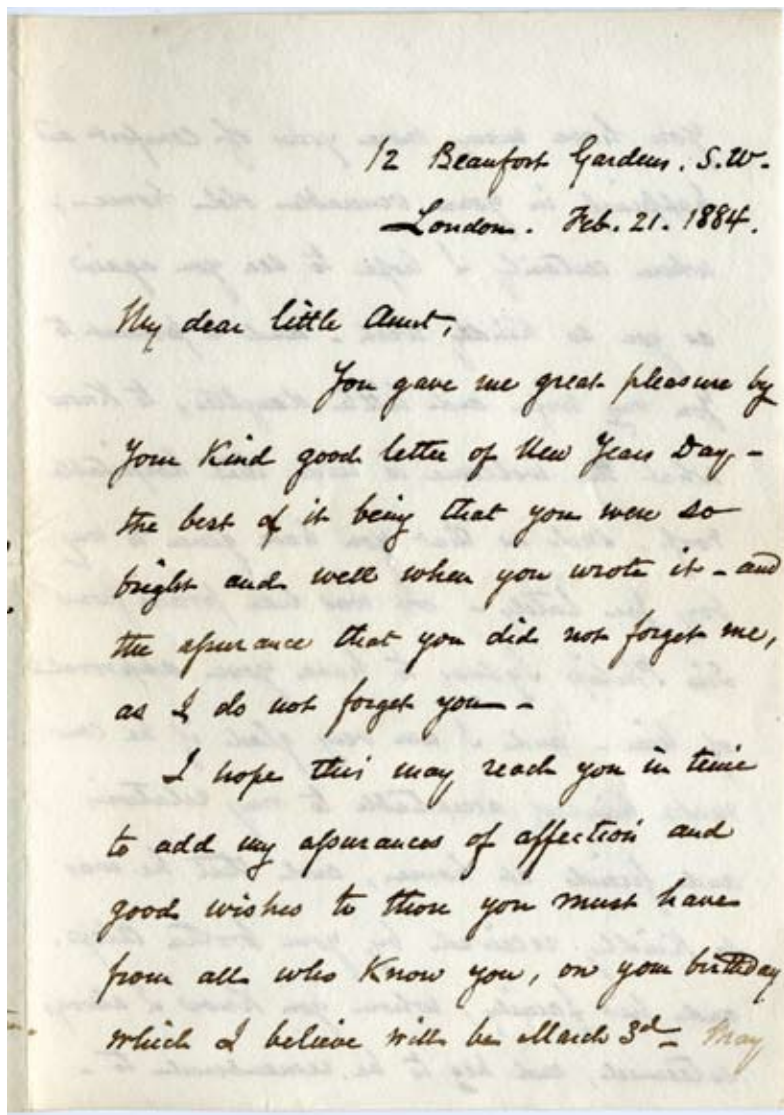 12 Beaufort Gardens. S.W.
London. Feb. 21. 1884.
My dear little Aunt,
You gave me great pleasure by
your kind good letter of New Years Day –
the best of it being that you were so
bright and well when you wrote it – and
the assurance that you did not forget me,
as I do not forget you –
I hope this may reach you in time
to add my assurances of affection and
good wishes to those you must have
from all who know you, on your birthday
which I believe will be March 3d – May